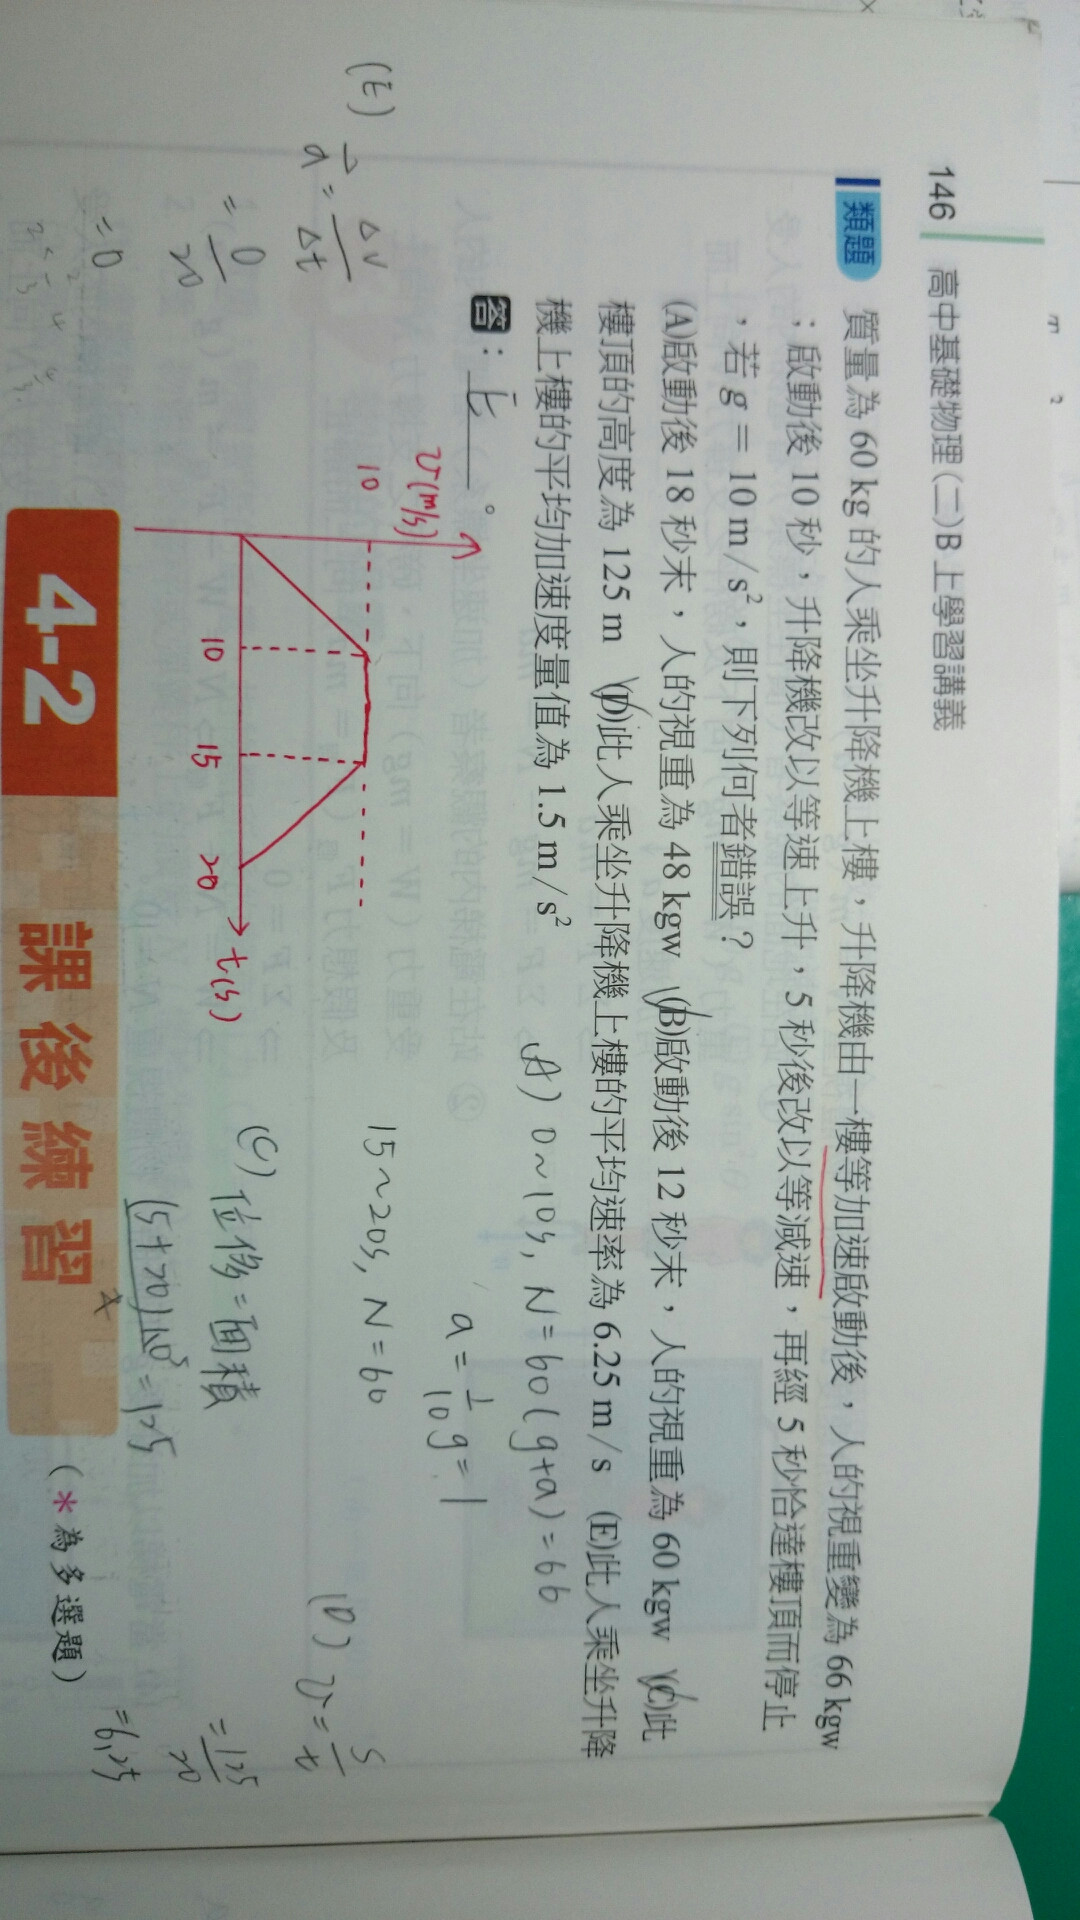 146 高中基礎物理(二)B 上學習講義
類題 質量為 60 kg 的人乘坐升降機上樓,升降機由一樓等加速啟動後,人的視重變為 66 kgw
;啟動後 10 秒,升降機改以等速上升,5 秒後改以等減速,再經 5 秒恰達樓頂而停止
,若 g = 10 m/s²,則下列何者錯誤?
(A)啟動後 18 秒末,人的視重為 48 kgw (B)啟動後 12 秒末,人的視重為 60 kgw (C)此
樓頂的高度為 125 m (D)此人乘坐升降機上樓的平均速率為 6.25 m/s (E)此人乘坐升降
機上樓的平均加速度量值為 1.5 m/s²
答:E。
v(m/s)
10
10 15 20 t(s)
(A) 0~10s, N=60(g+a)=66
a=1/10 g=1
15~20s, N=60
(C) 位移=面積
(5+20)×10/2=125
(D) v=S/t
=125/20
=6.25
(E) a=Δv/Δt
=0/20
=0
4-2 課後練習
(*為多選題)